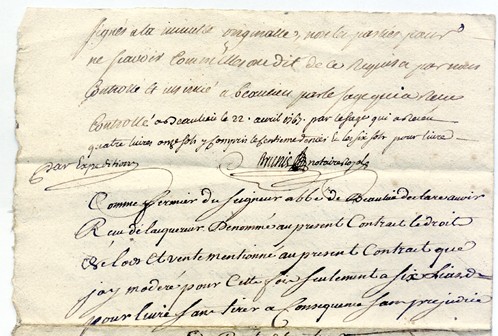 signés a la minutte originalle, non les parties pour
ne scavoir comme elles ont dit de ce requis a par nous
Controlle et insinué a beaulieu par le sage qui a receu
Controllé a Beaulieu le 22. avril 1767. par le sage qui a receu
quatre livres onze sols y compris le centieme denier les six sols pour livre.
par Expedition
Brunie notaire royal
Comme fermier du seigneur abbé de Beaulieu declare avoir
Receu de lacquereur Denommé au present Contract le droit
de lods et vente mentionné au present Contract que
j'ay moderé pour Cette fois seulement a six liards
pour livre sans tirer a Consequence sans prejudice